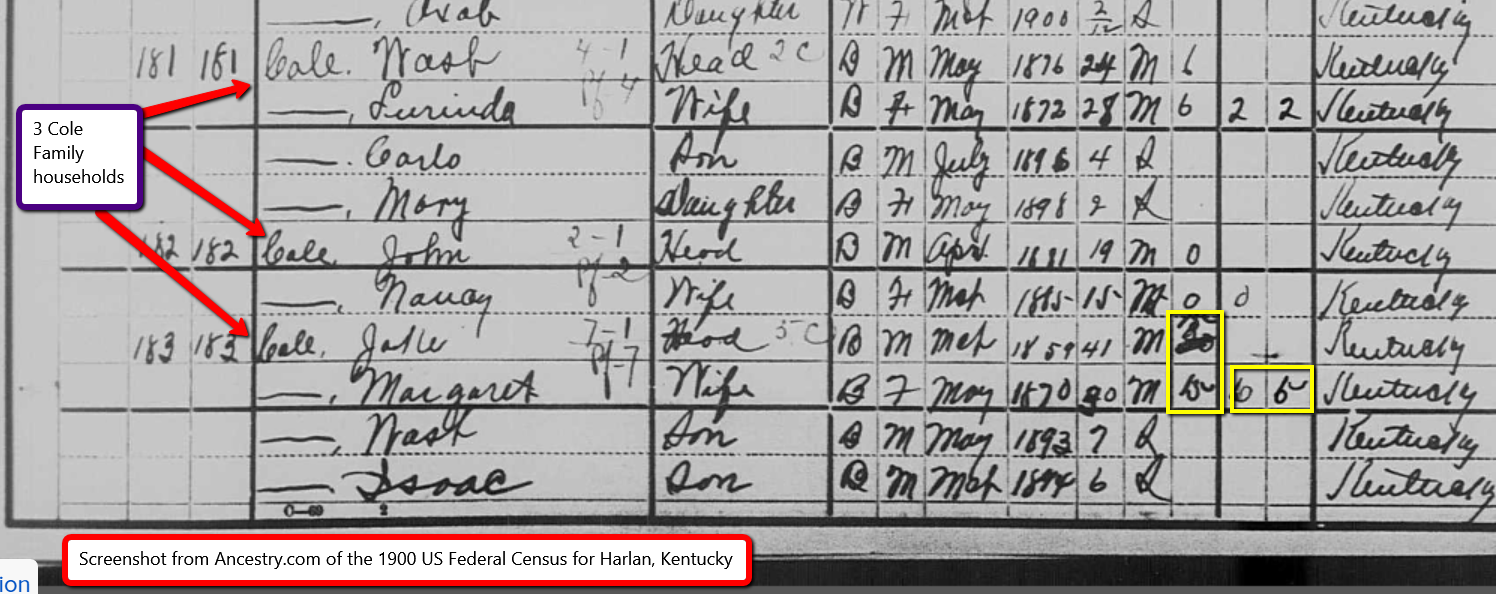 Daughter F Mch 1900 2/12 S Kentucky
181 181 Cole. Wash 4-1 Head 2 C B M May 1876 24 M 6 Kentucky
—, Lurinda Pf-4 Wife B F May 1872 28 M 6 2 2 Kentucky
—. Carlo Son B M July 1896 4 S Kentucky
—, Mary Daughter B F May 1898 2 S Kentucky
182 182 Cole, John 2-1 Head B M Apr. 1881 19 M 0 Kentucky
—, Nancy Pf-2 Wife B F Mch 1885 15 M 0 0 Kentucky
183 183 Cole, 7-1 Head 5 C B M Mch 1859 41 M Kentucky
—, Margaret Pf-7 Wife B F May 1870 30 M 6 5 Kentucky
—, Wash Son B M May 1893 7 S Kentucky
—. Isaac Son B M Mch 1894 6 S Kentucky
3 Cole
Family
households
Screenshot from Ancestry.com of the 1900 US Federal Census for Harlan, Kentucky
ion